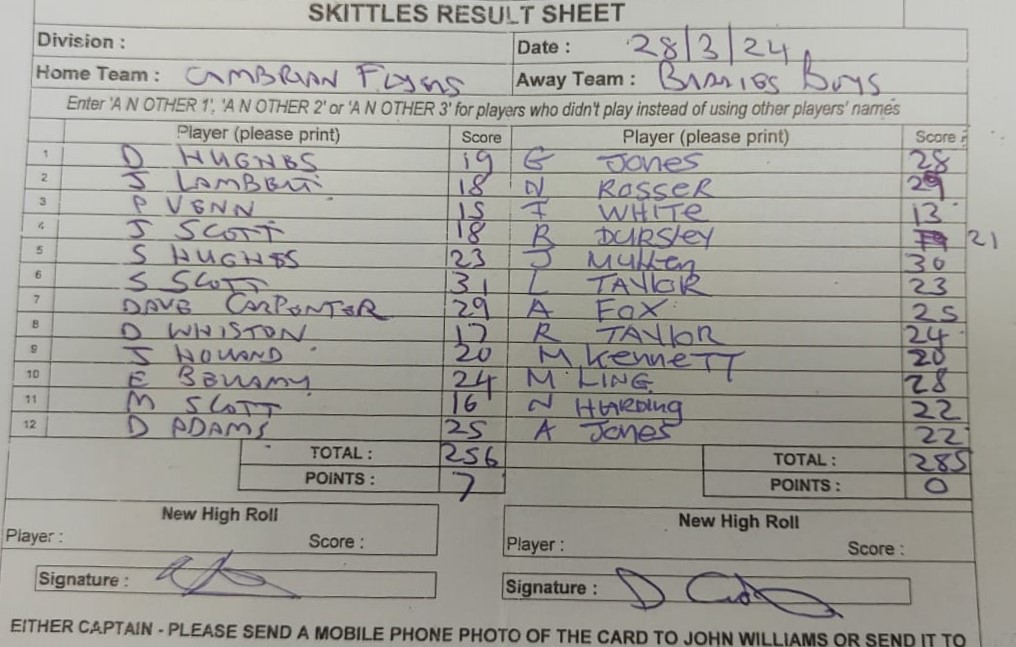 SKITTLES RESULT SHEET
Division : Date : 28/3/24
Home Team : CAMBRIAN FLYERS Away Team : BARRIES BOYS
Enter 'A N OTHER 1', 'A N OTHER 2' or 'A N OTHER 3' for players who didn't play instead of using other players' names
Player (please print) Score Player (please print) Score
1 D HUGHES 19 G Jones 28
2 J LAMBERT 18 N ROSSER 29
3 P VENN 15 F WHITE 13
4 J SCOTT 18 B DURSLEY 21
5 S HUGHES 23 J Mullen 30
6 S SCOTT 31 L TAYLOR 23
7 DAVE CARPENTER 29 A FOX 25
8 D WHISTON 17 R TAYLOR 24
9 J HOLLAND 20 M KENNETT 20
10 E BELLAMY 24 M LING 28
11 M SCOTT 16 N HARDING 22
12 D ADAMS 25 A Jones 22
TOTAL : 256 TOTAL : 285
POINTS : 7 POINTS : 0
New High Roll New High Roll
Player : Score : Player : Score :
Signature : Signature :
EITHER CAPTAIN - PLEASE SEND A MOBILE PHONE PHOTO OF THE CARD TO JOHN WILLIAMS OR SEND IT TO